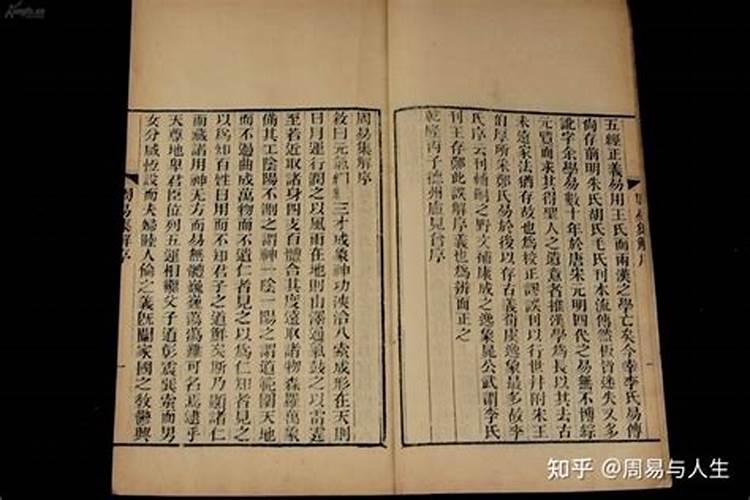 五經正義易用王氏而兩漢之學亡矣今幸李氏易傳
尚存前明朱氏胡氏毛氏刊本流傳然板皆迷失又多
訛字余學易數十年於唐宋元明四代之易無不博綜
元覽而求其得聖人之遺意者推漢學為長以其去古
未遠家法猶存故也為校正謬誤刊以行世幷附宋王
伯厚所采鄭氏易於後以存古義荀虞逸象最多故李
氏序云刊輔嗣之野文補康成之逸象晁公武謂李氏
刊王存鄭此誤解序義也為辨而正之
乾隆丙子德州盧見曾序
周易集解序
敘曰元氣絪縕三才成象神功浹洽八索成形在天則
日月運行潤之以風雨在地則山澤通氣鼓之以雷霆
至若近取諸身四支百體合其度遠取諸物森羅萬象
備其工陰陽不測之謂神一陰一陽之謂道範圍天地
而不過曲成萬物而不遺仁者見之以為仁知者見之
以為知百姓日用而不知君子之道鮮矣斯乃顯諸仁
而藏諸用神无方而易無體巍巍蕩蕩難可名焉逮乎
天尊地卑君臣位列五運相繼父子道彰震巽索而男
女分咸恆設而夫婦睦人倫之義旣闡家國之教鬱興
周易集解序
知乎 @周易与人生